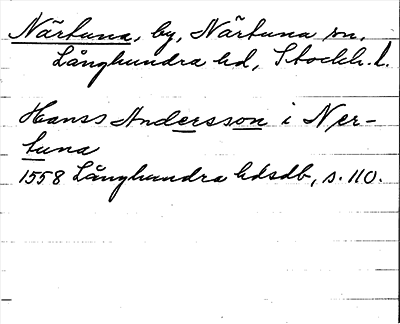 Närtuna, by, Närtuna sn,
Långhundra hd, Stockh. l.
Hanss Andersson i Ner-
tuna
1558 Långhundra hdsdb, s. 110.